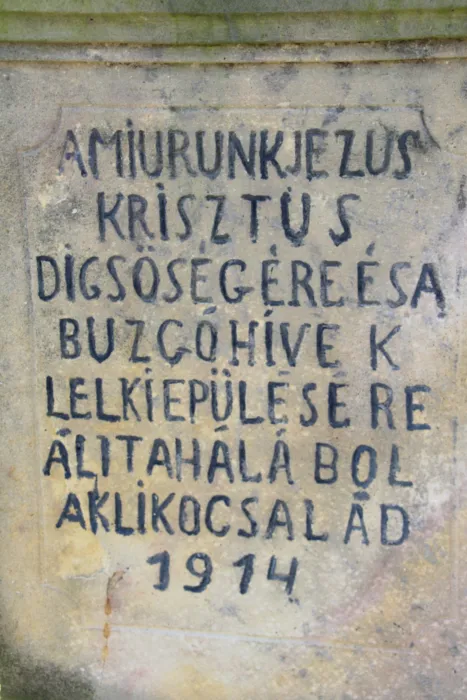 AMIURUNKJÉZUS
KRISZTUS
DIGSÖSÉGÉREÉSA
BUZGÓHÍVE K
LELKIEPÜLÉSÉ RE
ÁLITAHÁLÁ BOL
AKLIKOCSALÁD
1914